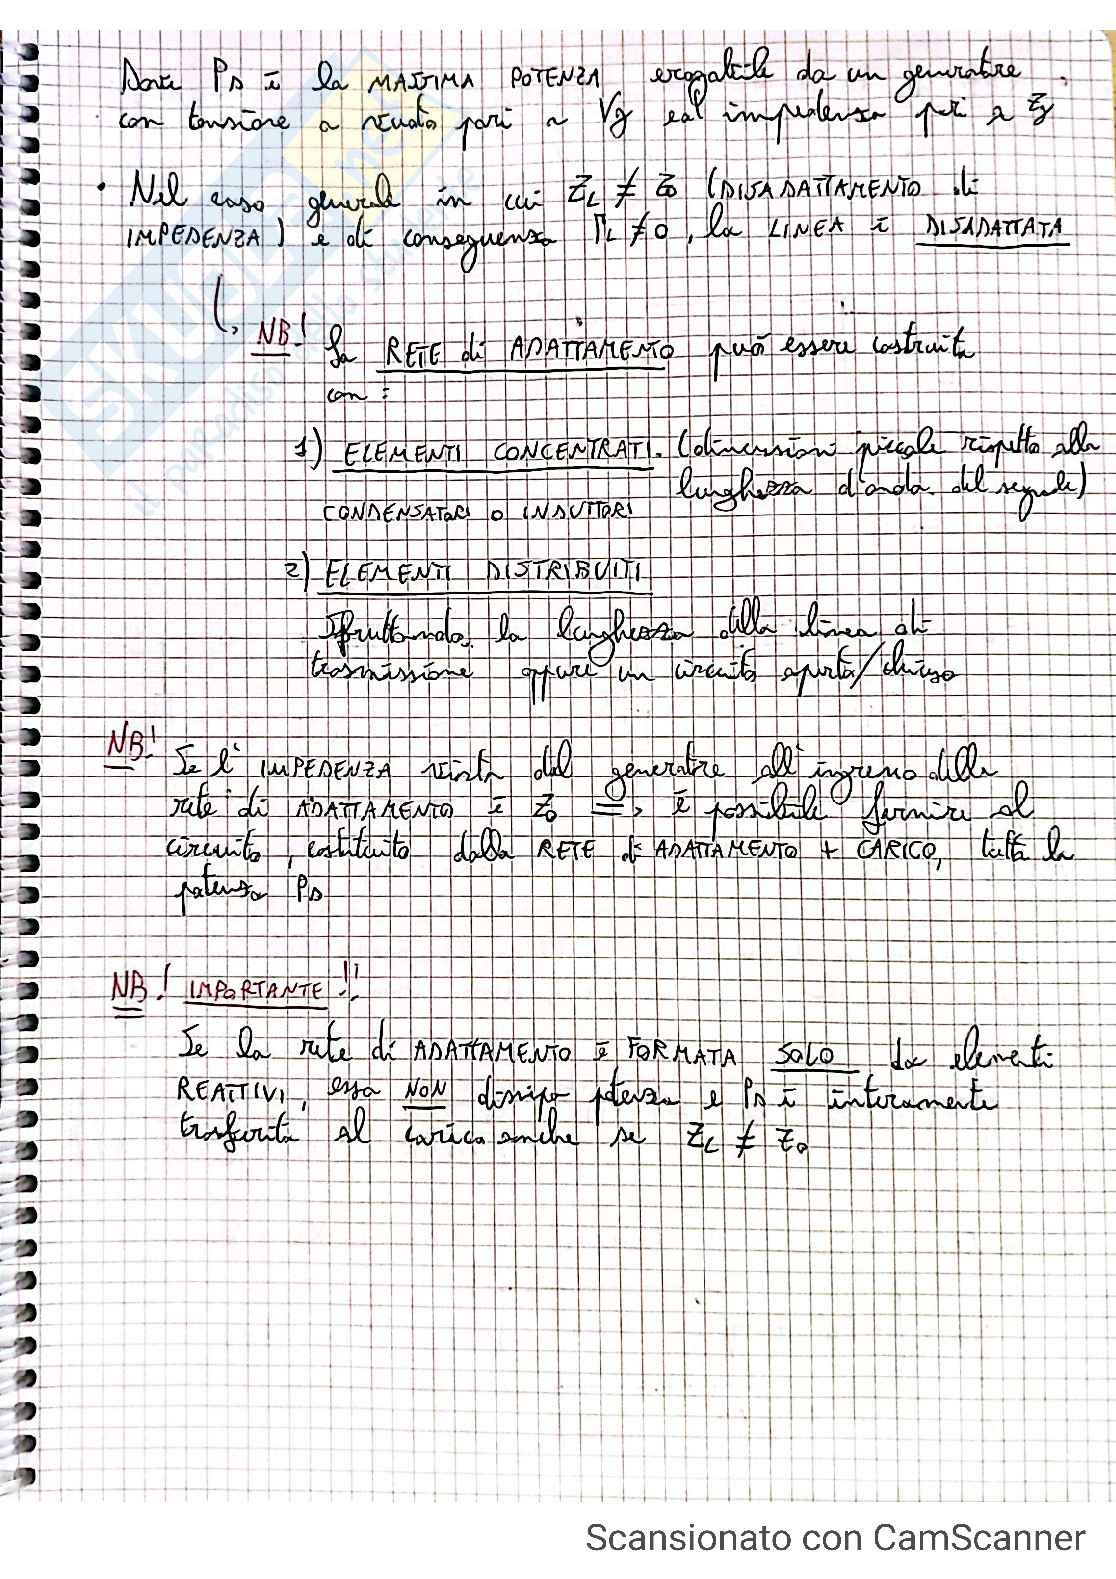 Dove PD è la MASSIMA POTENZA erogabile da un generatore
con tensione a vuoto pari a Vg ed impedenza pari a Zg
• Nel caso generale in cui ZL ≠ Z0 (DISADATTAMENTO di
IMPEDENZA) e di conseguenza ΓL ≠ 0, la LINEA è DISADATTATA
NB! La RETE di ADATTAMENTO può essere costruita
con:
1) ELEMENTI CONCENTRATI. (dimensioni piccole rispetto alla
lunghezza d'onda del segnale)
CONDENSATORI o INDUTTORI
2) ELEMENTI DISTRIBUITI
Sfruttando la lunghezza della linea di
trasmissione oppure un circuito aperto/chiuso
NB! Se l'IMPEDENZA vista dal generatore all'ingresso della
rete di ADATTAMENTO è Z0 => è possibile fornire al
circuito, costituito dalla RETE di ADATTAMENTO + CARICO, tutta la
potenza PD
NB! IMPORTANTE!!
Se la rete di ADATTAMENTO è FORMATA SOLO da elementi
REATTIVI, essa NON dissipa potenza e PD è interamente
trasferita al carico anche se ZL ≠ Z0
Scansionato con CamScanner